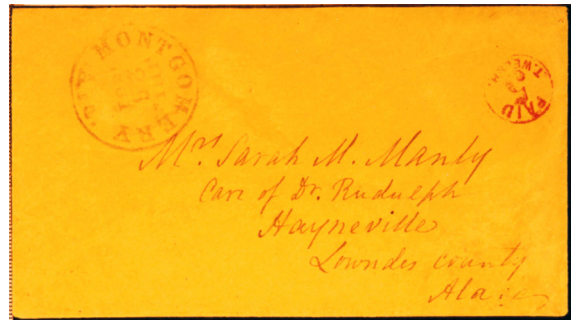 MONTGOMERY
PAID
T. WELSH.
Mrs Sarah M. Manly
Care of Dr. Rudulph
Hayneville
Lowndes County